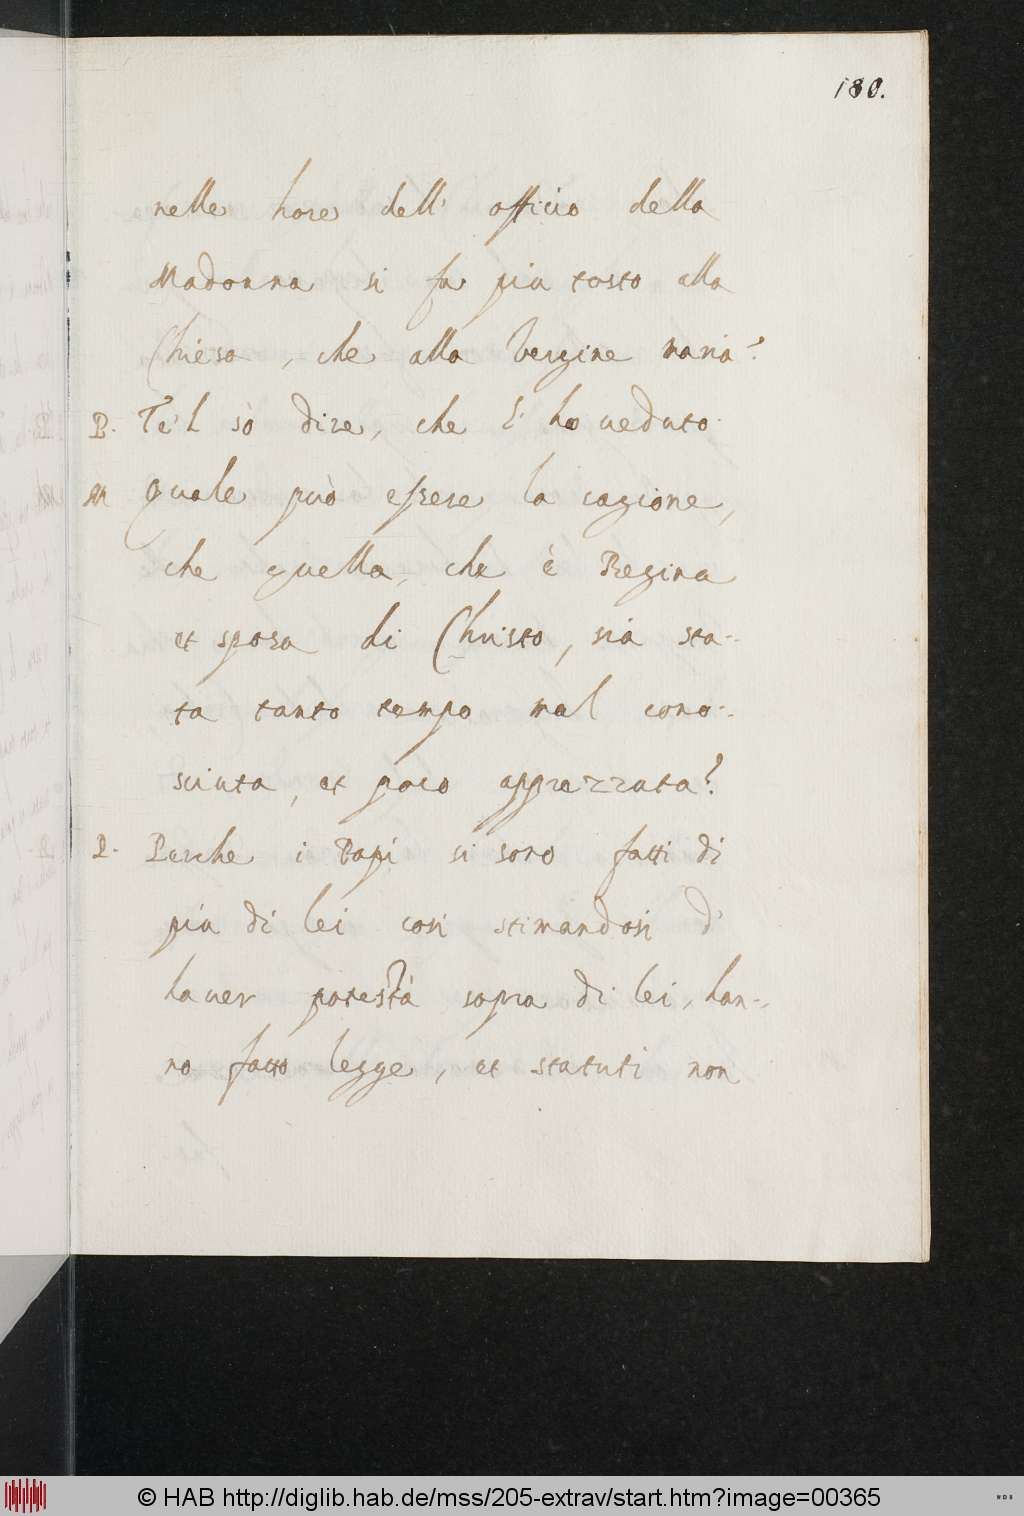 180.
nelle hore dell' officio della
Madonna si fa piu tosto alla
Chiesa, che alla Vergine maria?
P. Te'l sò dire, che l' ho ueduto.
M Quale può essere la cagione,
che quella, che è Regina
et sposa di Christo, sia sta-
ta tanto tempo mal cono-
sciuta, et poco apprezzata?
P. Perche i Papi si sono fatti di
piu di lei cosi stimandosi d'
hauer potestà sopra di lei, han-
no fatto legge, et statuti non
© HAB http://diglib.hab.de/mss/205-extrav/start.htm?image=00365